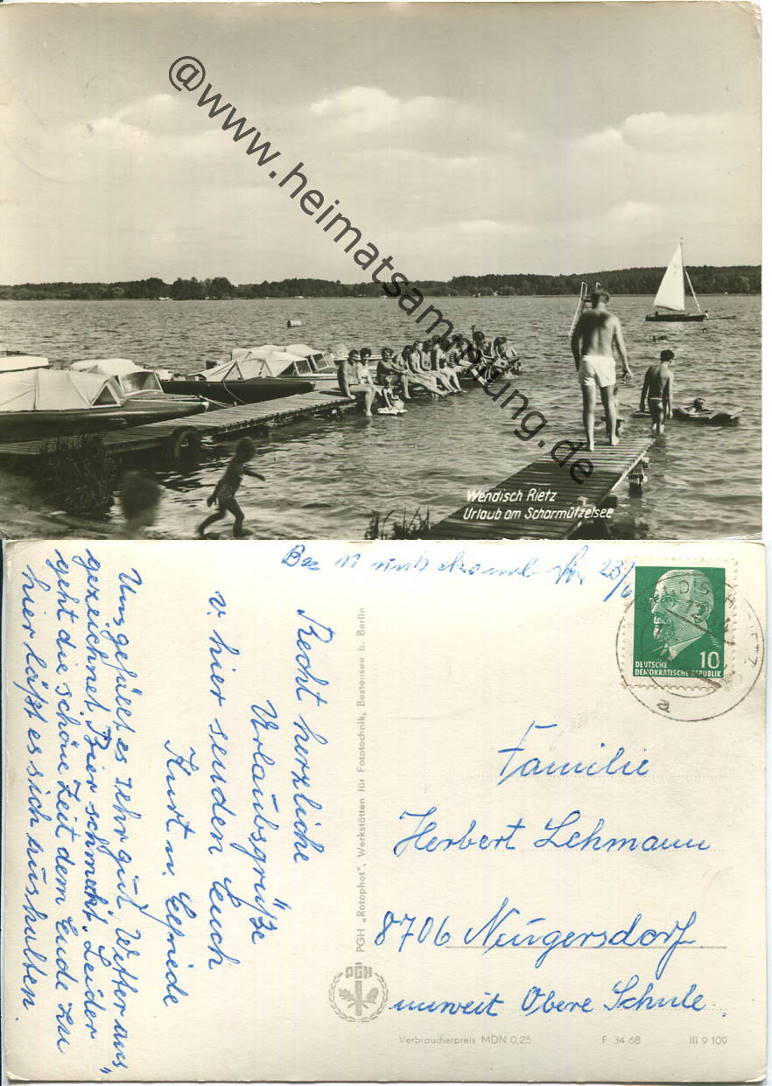 @www.heimatsammlung.de
Wendisch Rietz
Urlaub am Scharmützelsee
28/6
DEUTSCHE
DEMOKRATISCHE REPUBLIK
10
a
Recht herzliche
Urlaubsgrüße
v. hier senden Euch
Kurt u. Elfriede
Uns gefällt es sehr gut, Wetter aus
gezeichnet, Bier schmeckt. Leider
geht die schöne Zeit dem Ende zu
hier läßt es sich aushalten.
PGH „Rotophot", Werkstätten für Fototechnik, Bestensee b. Berlin
PGH
Familie
Herbert Lehmann
8706 Neugersdorf
unweit Obere Schule.
Verbraucherpreis MDN 0,25
F 34 68
III 9 109